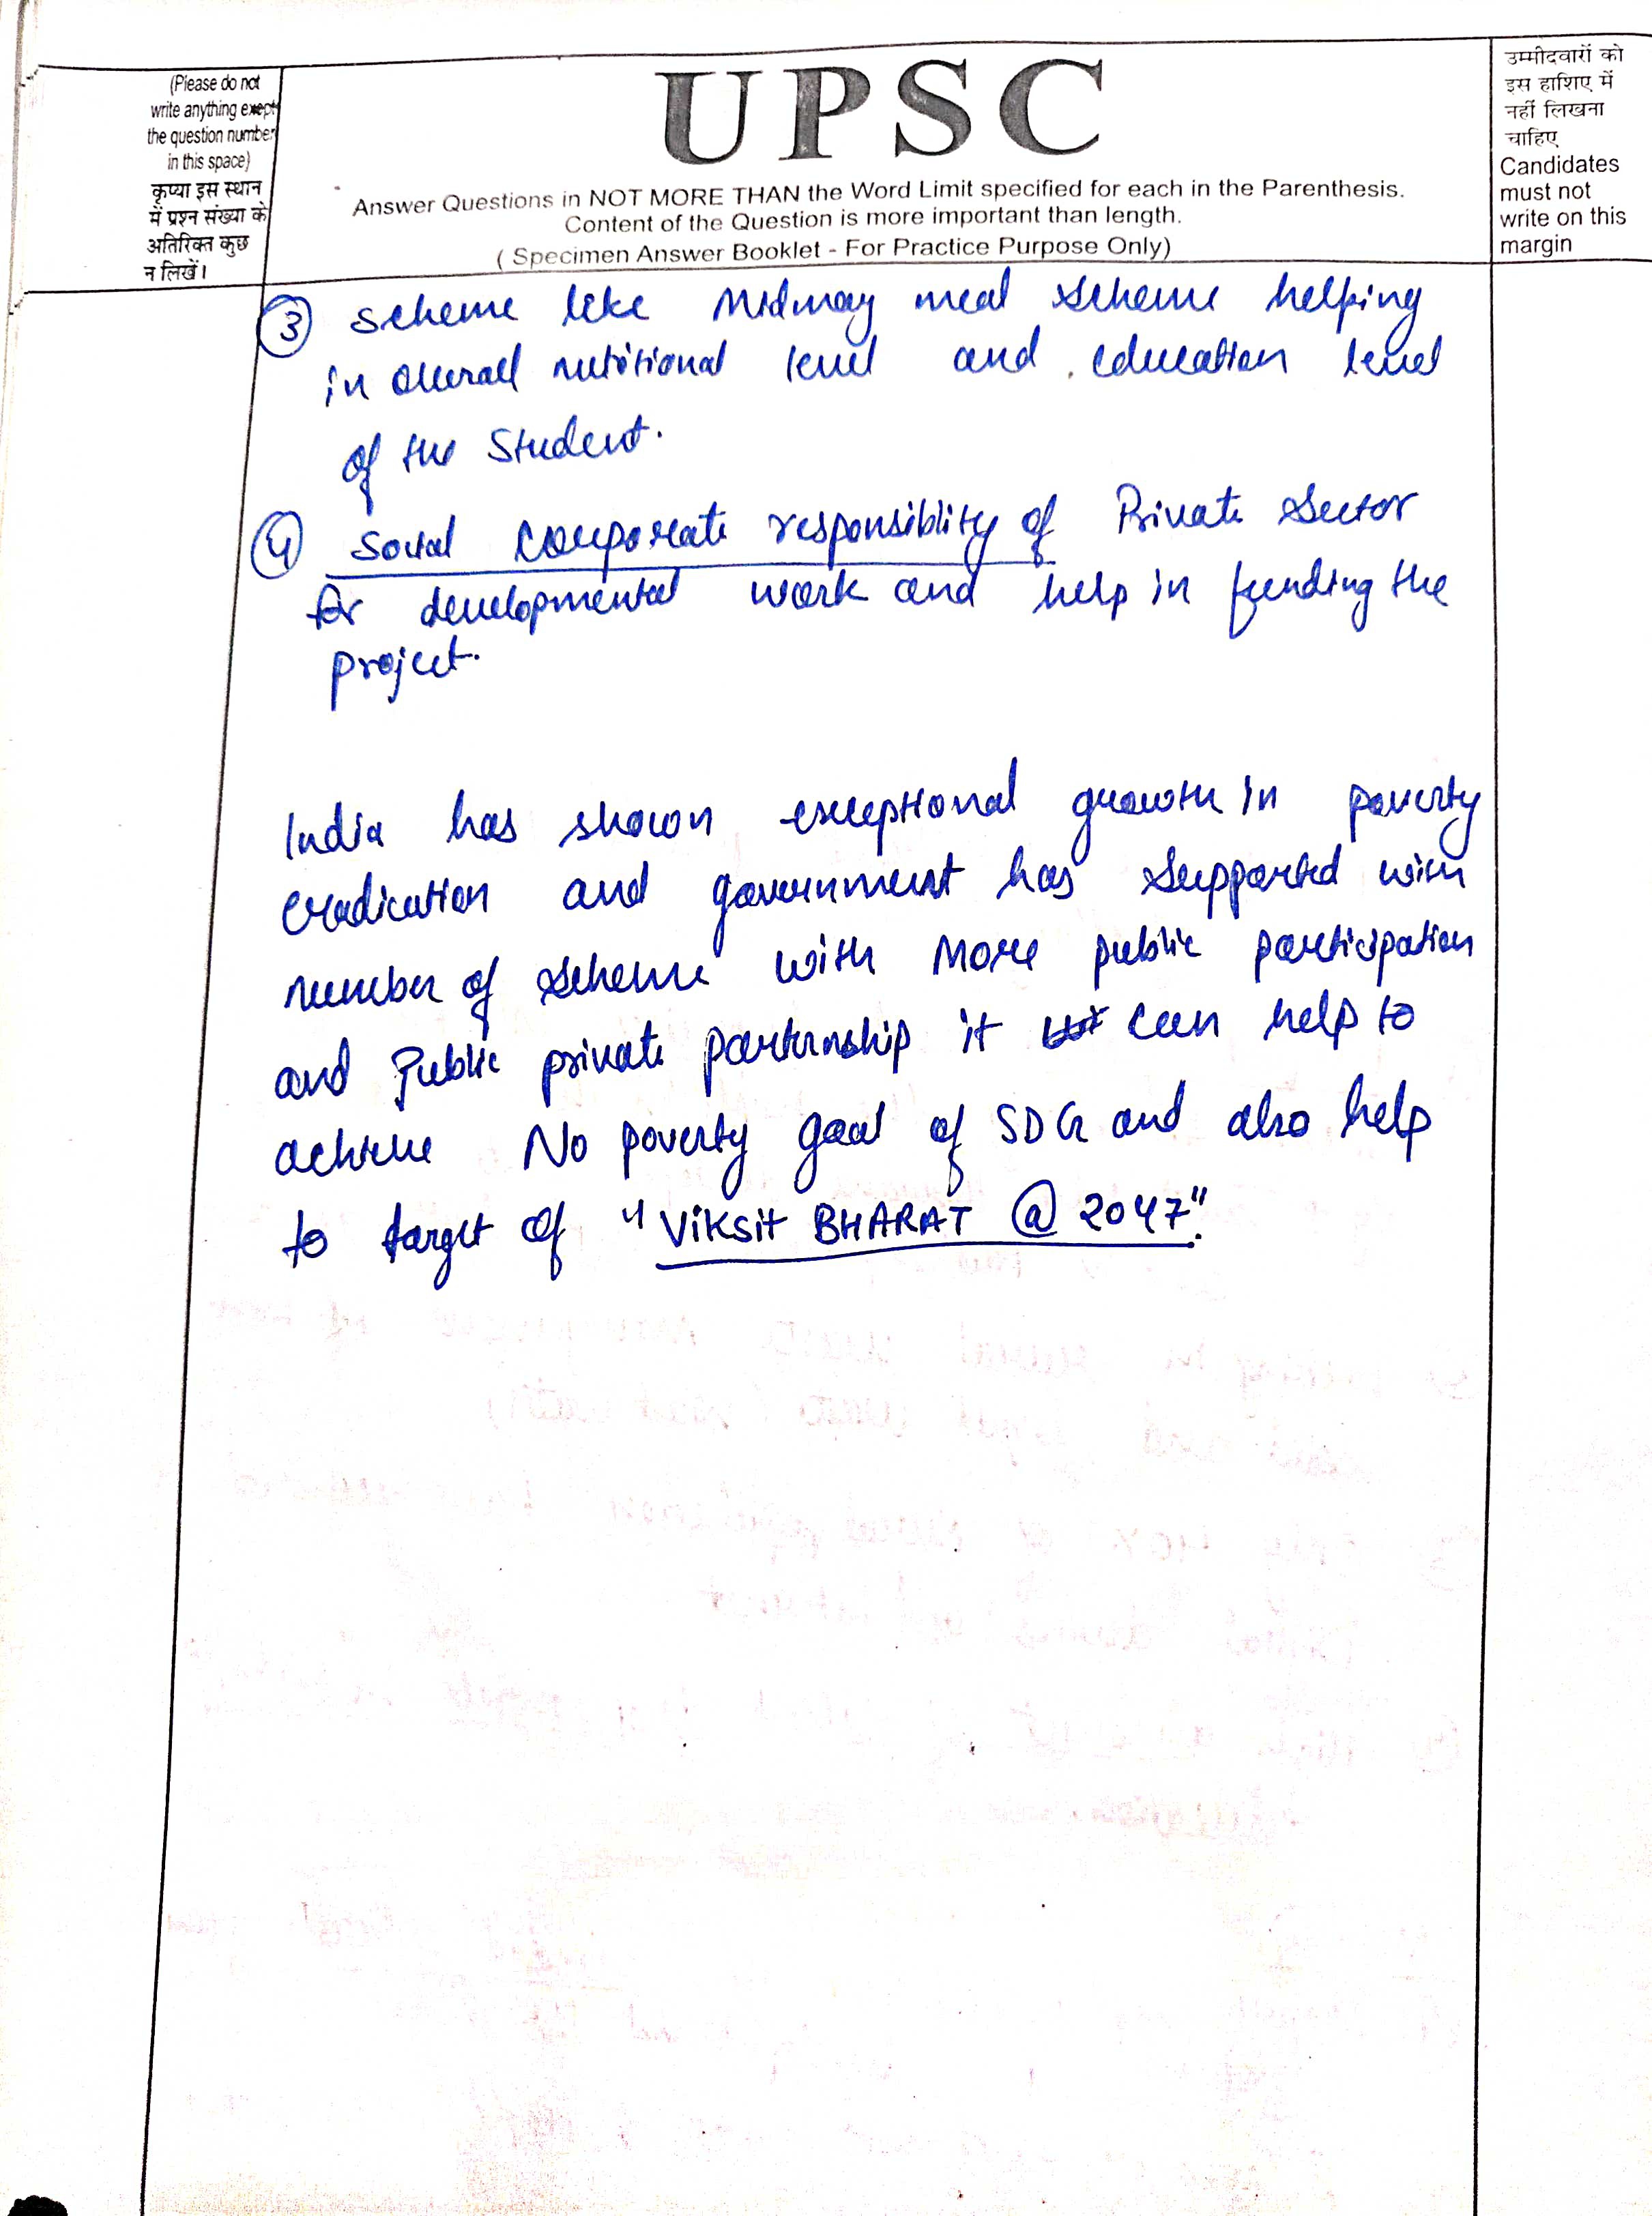 (Please do not
write anything exept
the question number
in this space)
कृप्या इस स्थान
में प्रश्न संख्या के
अतिरिक्त कुछ
न लिखें।
UPSC
Answer Questions in NOT MORE THAN the Word Limit specified for each in the Parenthesis.
Content of the Question is more important than length.
( Specimen Answer Booklet - For Practice Purpose Only)
उम्मीदवारों को
इस हाशिए में
नहीं लिखना
चाहिए
Candidates
must not
write on this
margin
③ scheme like Midmay meal scheme helping
in overall nutritional level and education level
of the Student.
④ Social Corporate responsiblity of Private Sector
for developmental work and help in funding the
project.
India has shown exceptional growth in poverty
eradication and government has supported with
number of scheme with More public participation
and Public private parternship it can help to
achieve No poverty goal of SDG and also help
to target of "Viksit BHARAT @ 2047".